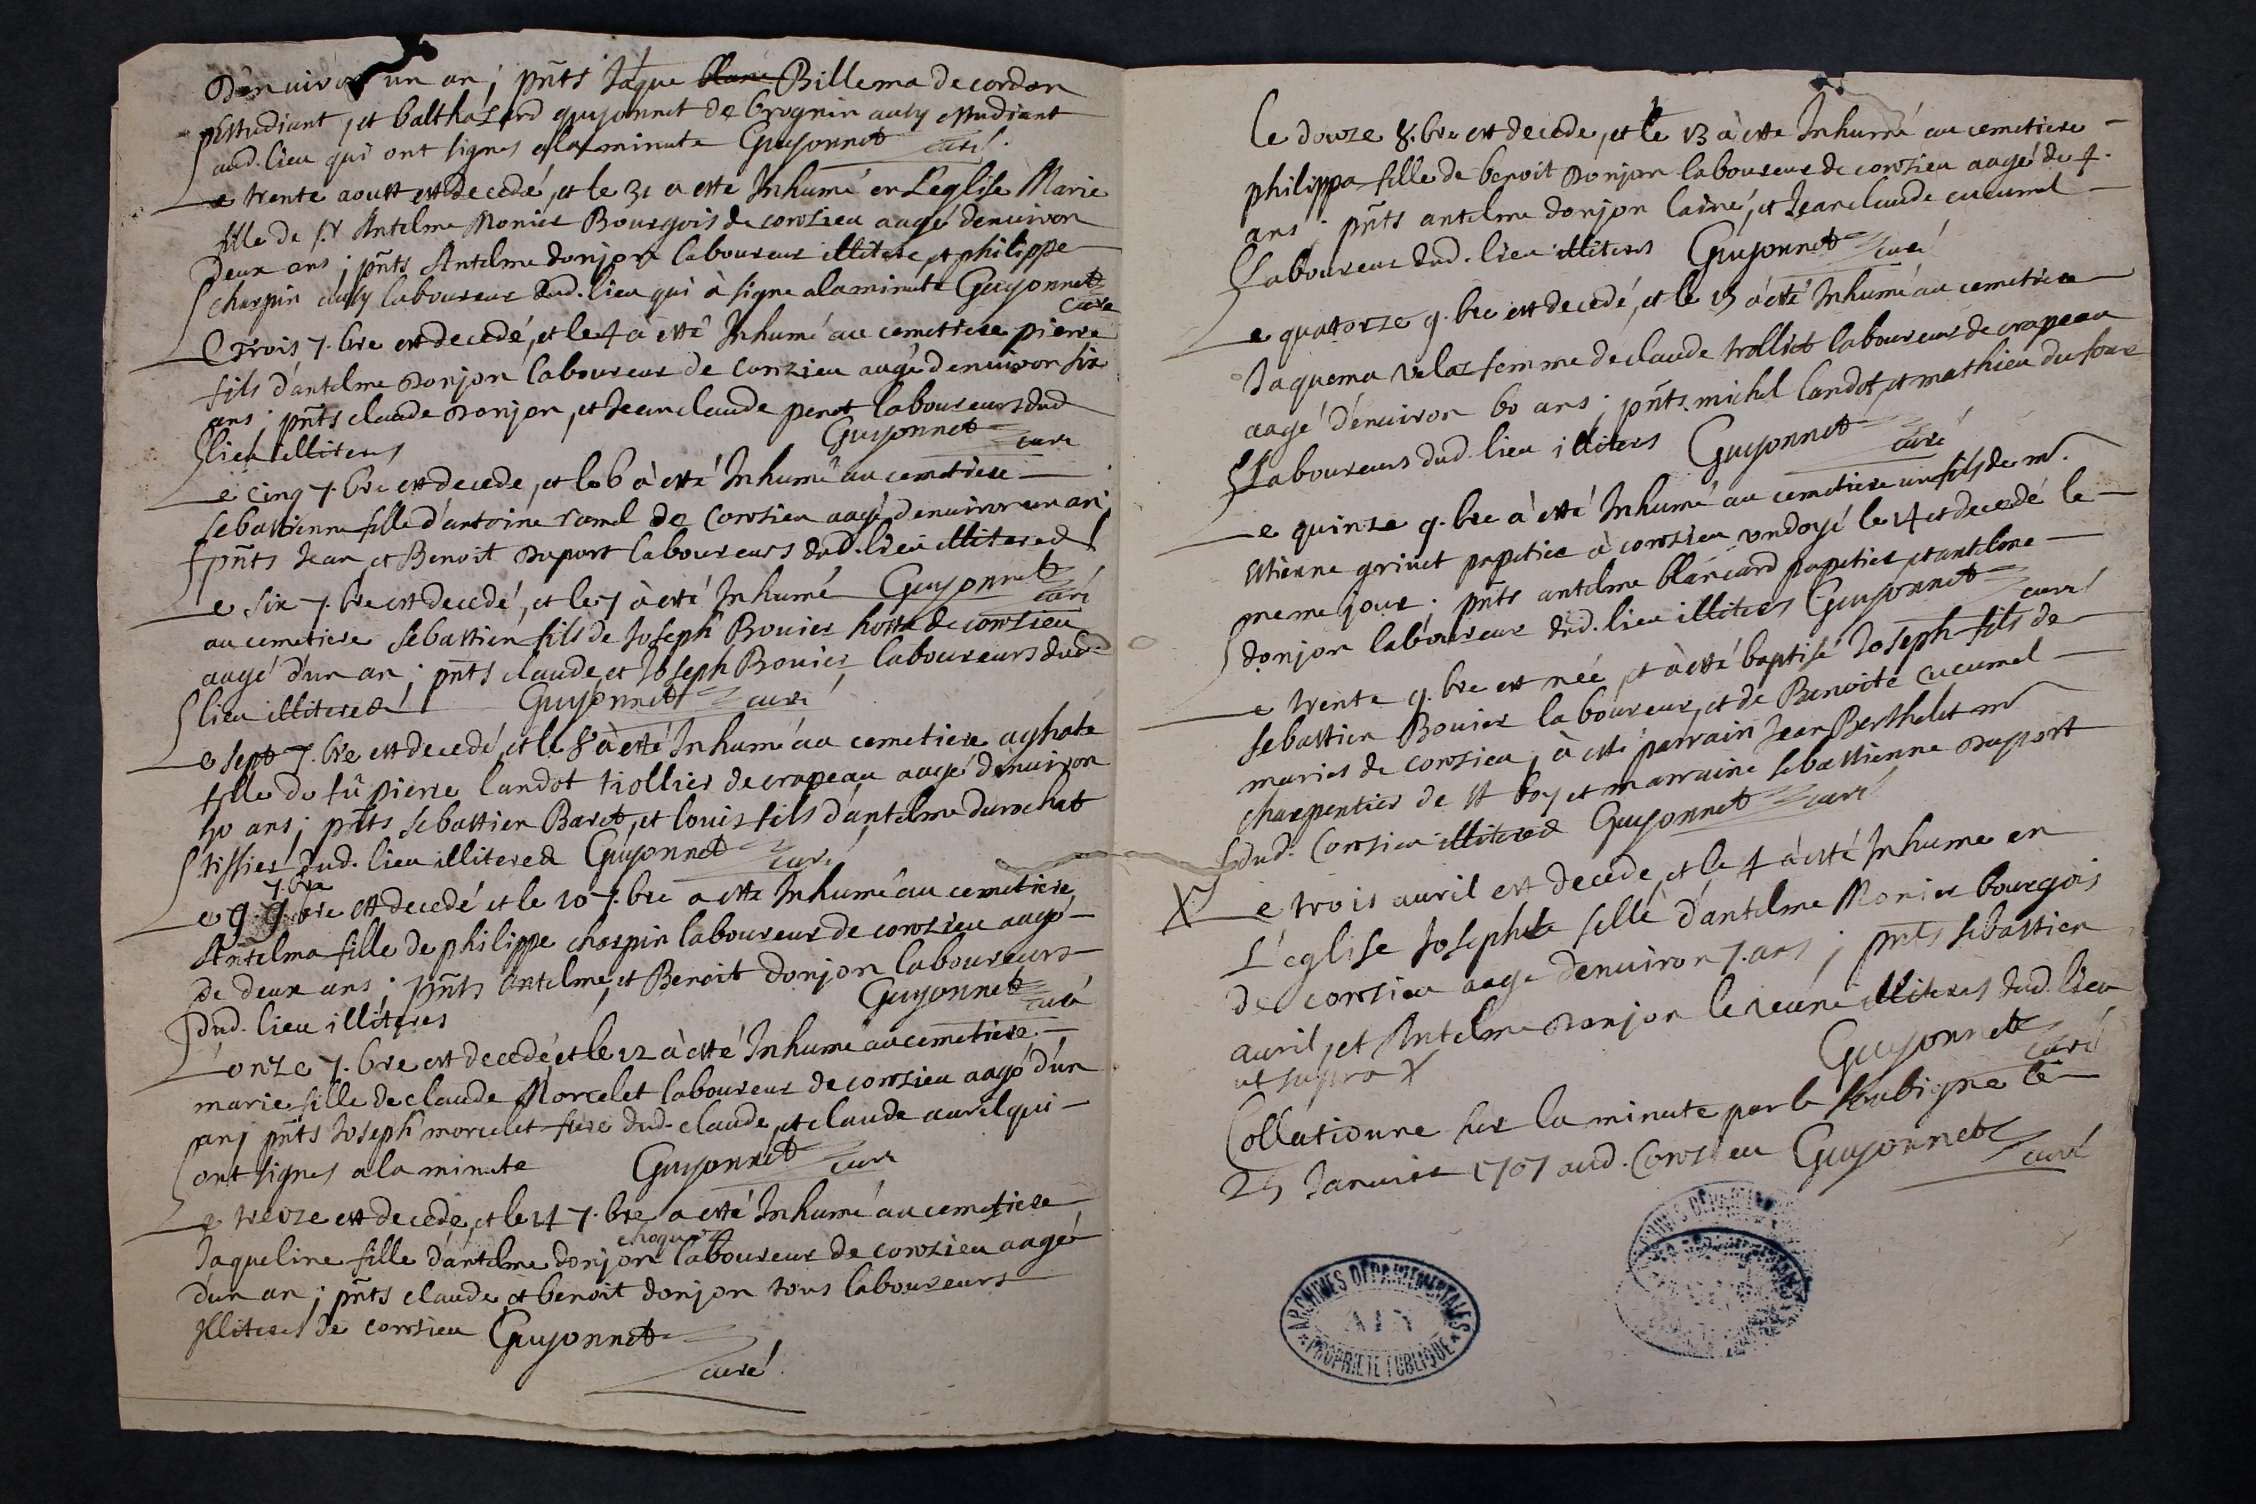 D'enuiron un an ; pñts Jaque blanc Billema de cordon
estudiant, et balthazard guyonnet de brognin aussy estudiant
aud. lieu qui ont signes a la minute Guyonnet curé
Le trente aoust est decedé, et le 31 a esté Inhumé en L'eglise Marie
fille de s.r Antelme Monier Bourgois de conzieu aagé denuiron
Deux ans ; pñts Antelme donjon laboureur illitere, et philippe
charpin aussy laboureur dud. lieu qui à signe a la minute Guyonnet
curé
Le Trois 7.bre est decedé, et le 4 a esté Inhumé au cemetiere pierre
fils d'antelme Donjon laboureur de Conzieu aagé denuiron six
ans ; pñts claude Donjon, et Jean claude penet laboureurs dud
lieu illiteres Guyonnet curé
Le cinq 7.bre est decede, et le 6 à esté Inhumé au cemetiere
sebastienne fille d'antoine ramel de Conzieu aagé denuiron un an ;
pñts Jean, et Benoit Duport laboureurs dud. lieu illitered
Le six 7.bre est decedé, et le 7 à esté Inhumé Guyonnet curé
au cemetiere sebastien fils de Joseph Bouier hoste de conzieu
aagé d'un an ; pñts claude, et Joseph Bouier laboureurs dud.
lieu illitered Guyonnet curé
Le sept 7.bre est decedé, et le 8 à esté Inhumé au cemetiere aghate
fille de fû pierre landot tiollier de crapeau aagé denuiron
40 ans ; pñts sebastien Baret, et louis fils d'antelme durochat
tissier dud. lieu illitered Guyonnet curé
7.bre
Le 9 9.bre est decedé et le 10 7.bre a esté Inhumé au cemetiere
Antelma fille de philippe charpin laboureur de conzieu aagé
de deux ans ; pñts antelme, et Benoit donjon laboureurs
dud. lieu illiteres Guyonnet curé
L'onze 7.bre est decedé, et le 12 à esté Inhumé au cemetiere
marie fille de claude Morcelet laboureur de conzieu aagé d'un
an ; pñts Joseph morcelet frere dud. claude, et claude auril qui
ont signes a la minute Guyonnet curé
Le treize est decede, et le 14 7.bre a esté Inhumé au cemetiere
Jaqueline fille d'antelme donjon laboureur de conzieu aagé
d'un an ; pñts claude, et benoit donjon tous laboureurs
Illiteres de conzieu Guyonnet
curé
Le douze 8.bre est decede, et le 13 à esté Inhumé au cemetiere
philippa fille de benoit Donjon laboureur de conzieu aagé de 4.
ans ; pñts antelme donjon lainé, et Jean claude cucumel
Laboureur dud. lieu illiteres Guyonnet curé
Le quatorze 9.bre est decedé, et le 15 à esté Inhumé au cemetiere
Jaquema velaz femme de claude trolliet laboureur de crapeau
aagé d'enuiron 60 ans ; pñts michel landot, et mathieu du four
Laboureurs dud. lieu illiters Guyonnet curé
Le quinze 9.bre à esté Inhumé au cemetiere un fils de mr.
Estienne griuet papetier à conzieu ondoyé le 14 et decedé le
meme jour ; pñts antelme blancard papetier et antelme
donjon laboureur dud. lieu illiters Guyonnet curé
Le trente 9.bre est née, et à esté baptisé Joseph fils de
sebastien Bouier laboureur, et de Benoite cucumel
maries de conzieu, à esté parrain Jean Berthelet mr
charpentier de st boy et marraine sebastienne Duport
dud. Conzieu illitered Guyonnet curé
X Le trois auril est decede, et le 4 à esté Inhume en
L'eglise Josephte fille d'antelme Monier bourgois
de conzieu aage denuiron 7. ans ; pñts sebastien
auril, et Antelme Donjon le Jeune illiteres dud. lieu
ut supra X Guyonnet curé
Collationne sur la minute par le soubsigne le
25 Januier 1707 aud. Conzieu Guyonnet curé
ARCHIVES DÉPARTEMENTALES
AIN
PROPRIÉTÉ PUBLIQUE